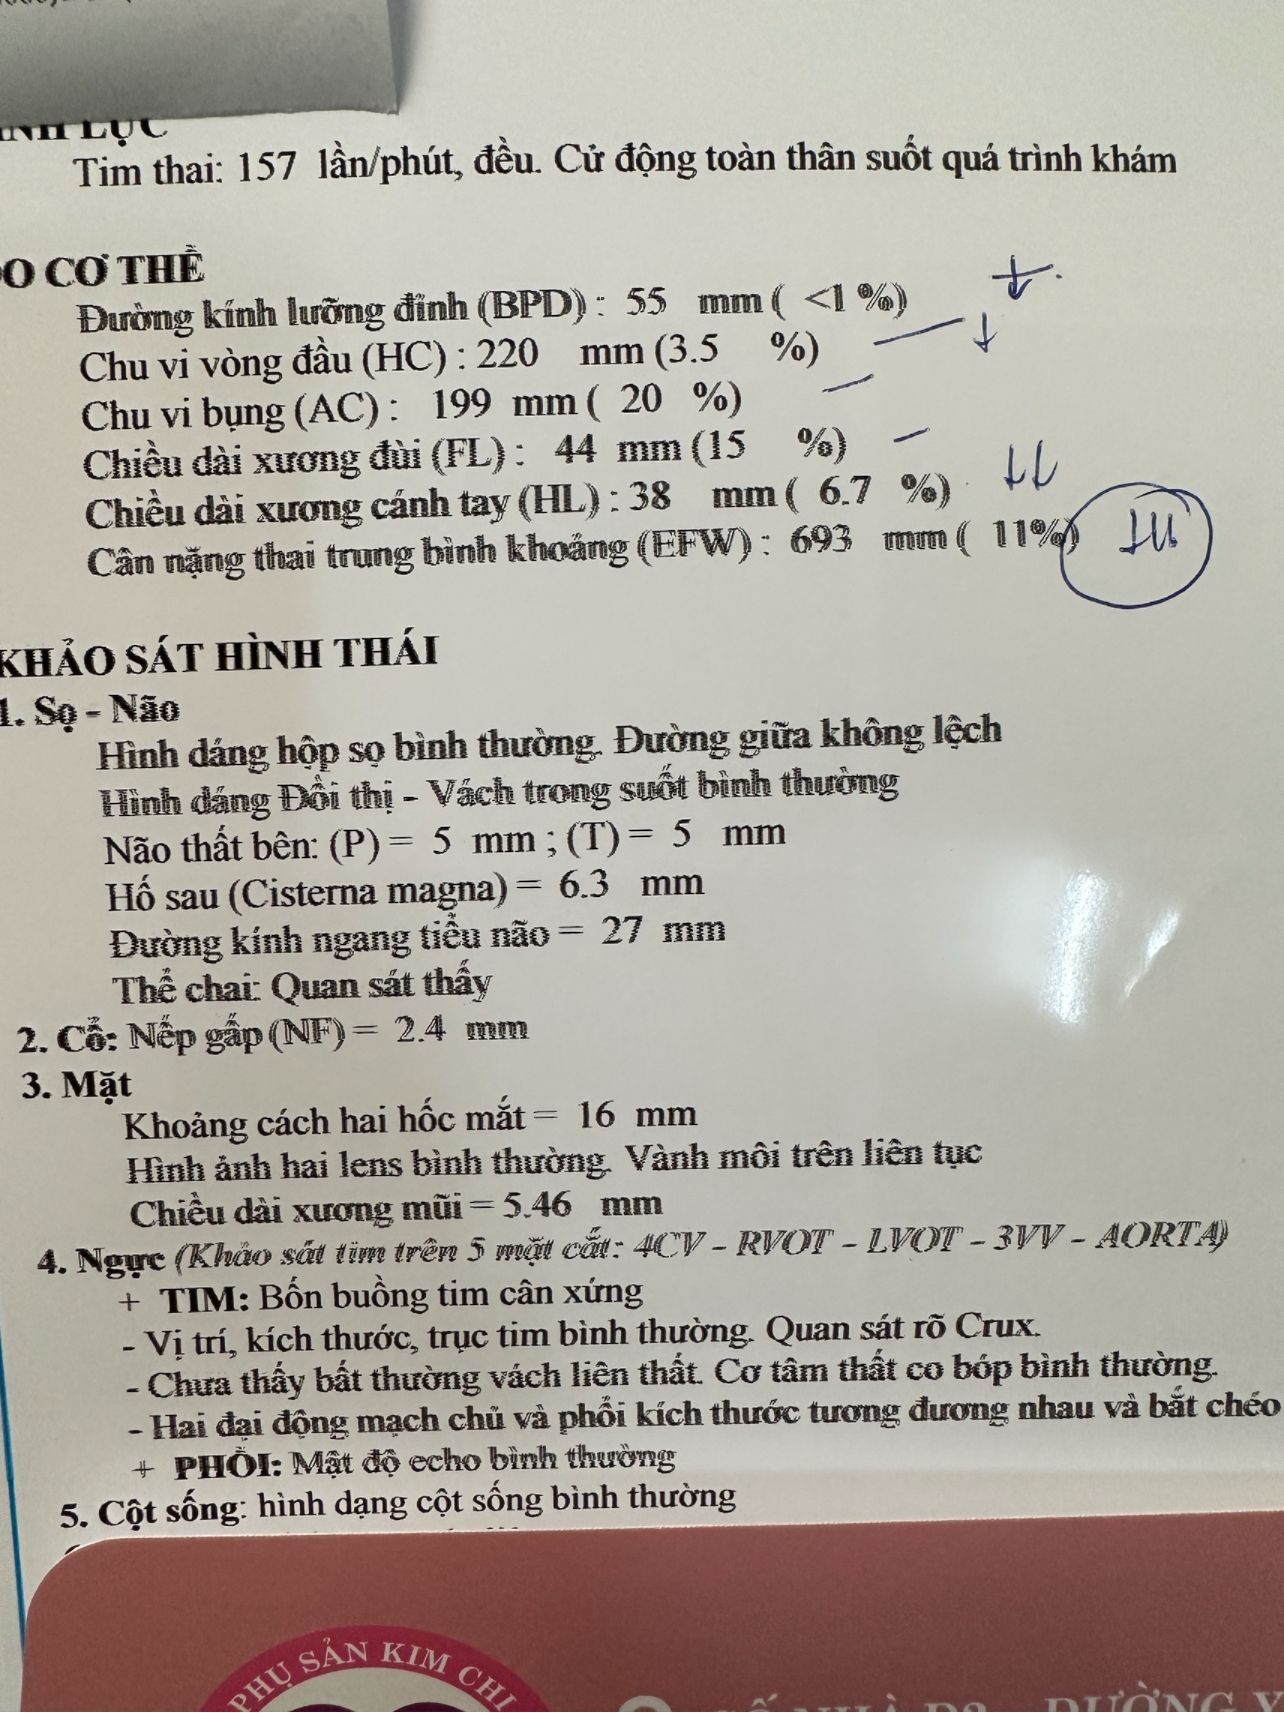 LỤC
Tim thai: 157 lần/phút, đều. Cử động toàn thân suốt quá trình khám
ĐO CƠ THỂ
Đường kính lưỡng đỉnh (BPD) : 55 mm ( <1 %)
Chu vi vòng đầu (HC) : 220 mm (3.5 %)
Chu vi bụng (AC) : 199 mm ( 20 %)
Chiều dài xương đùi (FL) : 44 mm (15 %)
Chiều dài xương cánh tay (HL) : 38 mm ( 6.7 %)
Cân nặng thai trung bình khoảng (EFW) : 693 mm ( 11%)
KHẢO SÁT HÌNH THÁI
1. Sọ - Não
Hình dáng hộp sọ bình thường. Đường giữa không lệch
Hình dáng Đồi thị - Vách trong suốt bình thường
Não thất bên: (P) = 5 mm ; (T) = 5 mm
Hố sau (Cisterna magna) = 6.3 mm
Đường kính ngang tiểu não = 27 mm
Thể chai: Quan sát thấy
2. Cổ: Nếp gấp (NF) = 2.4 mm
3. Mặt
Khoảng cách hai hốc mắt = 16 mm
Hình ảnh hai lens bình thường. Vành môi trên liên tục
Chiều dài xương mũi = 5.46 mm
4. Ngực (Khảo sát tim trên 5 mặt cắt: 4CV - RVOT - LVOT - 3VV - AORTA)
+ TIM: Bốn buồng tim cân xứng
- Vị trí, kích thước, trục tim bình thường. Quan sát rõ Crux.
- Chưa thấy bất thường vách liên thất. Cơ tâm thất co bóp bình thường.
- Hai đại động mạch chủ và phổi kích thước tương đương nhau và bắt chéo
+ PHỔI: Mật độ echo bình thường
5. Cột sống: hình dạng cột sống bình thường
PHỤ SẢN KIM CHI
SỐ NHÀ D2 ĐƯỜNG Y